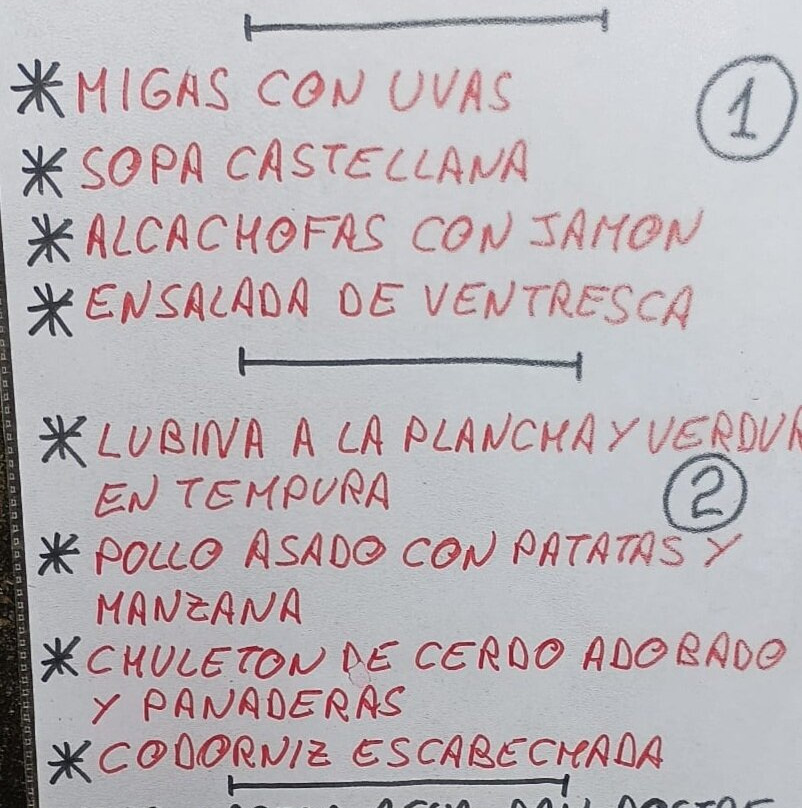 * MIGAS CON UVAS
1
* SOPA CASTELLANA
* ALCACHOFAS CON JAMON
* ENSALADA DE VENTRESCA
* LUBINA A LA PLANCHA Y VERDUR
EN TEMPURA
2
* POLLO ASADO CON PATATAS Y
MANZANA
* CHULETON DE CERDO ADOBADO
Y PANADERAS
* CODORNIZ ESCABECHADA